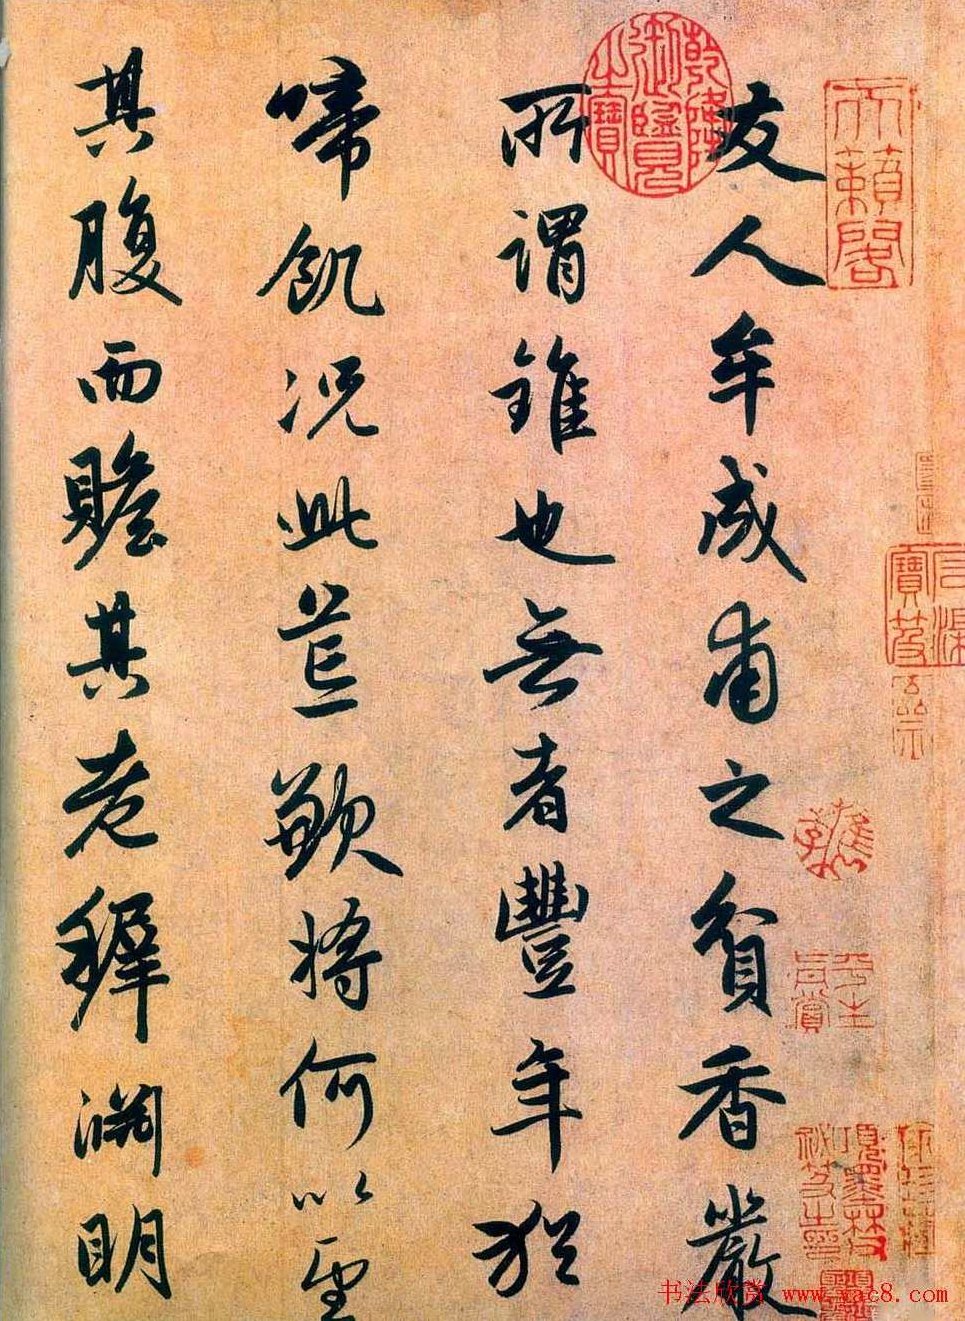 友人牟成甫之貧香嚴
所謂錐也無者豐年猶
啼飢況此荒歉將何以望
其腹而贍其老穉淵明
乾隆御覽之寶
天籟閣
書法欣赏 www.yac8.com